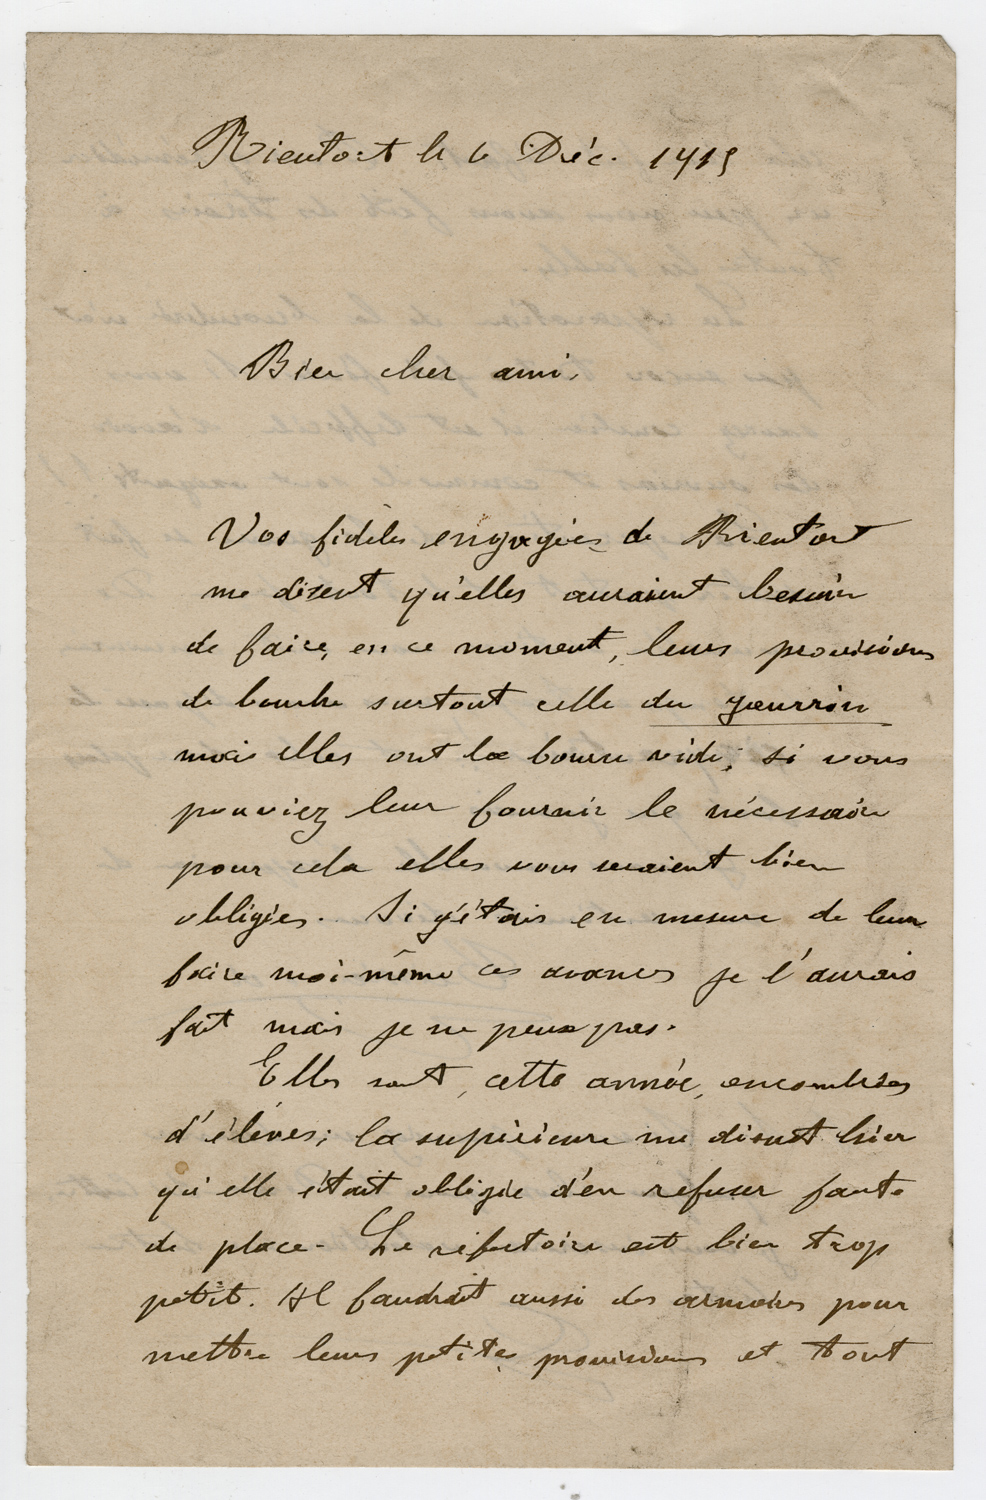 Rieutort le 6 Déc. 1915
Bien cher ami,
Vos fidèles engagées de Rieutort
me disent qu'elles auraient besoin
de faire, en ce moment, leurs provisions
de bouche surtout celle du
mais elles ont la bourse vide; si vous
pouviez leur fournir le nécessaire
pour cela elles vous seraient bien
obligées. Si j'étais en mesure de leur
faire moi-même ces avances je l'aurais
fait mais je ne peux pas.
Elles sont, cette année, encombrées
d'élèves; la supérieure me disait hier
qu'elle était obligée d'en refuser faute
de place. Le réfectoire est bien trop
petit. Il faudrait aussi des armoires pour
mettre leurs petites provisions et tout